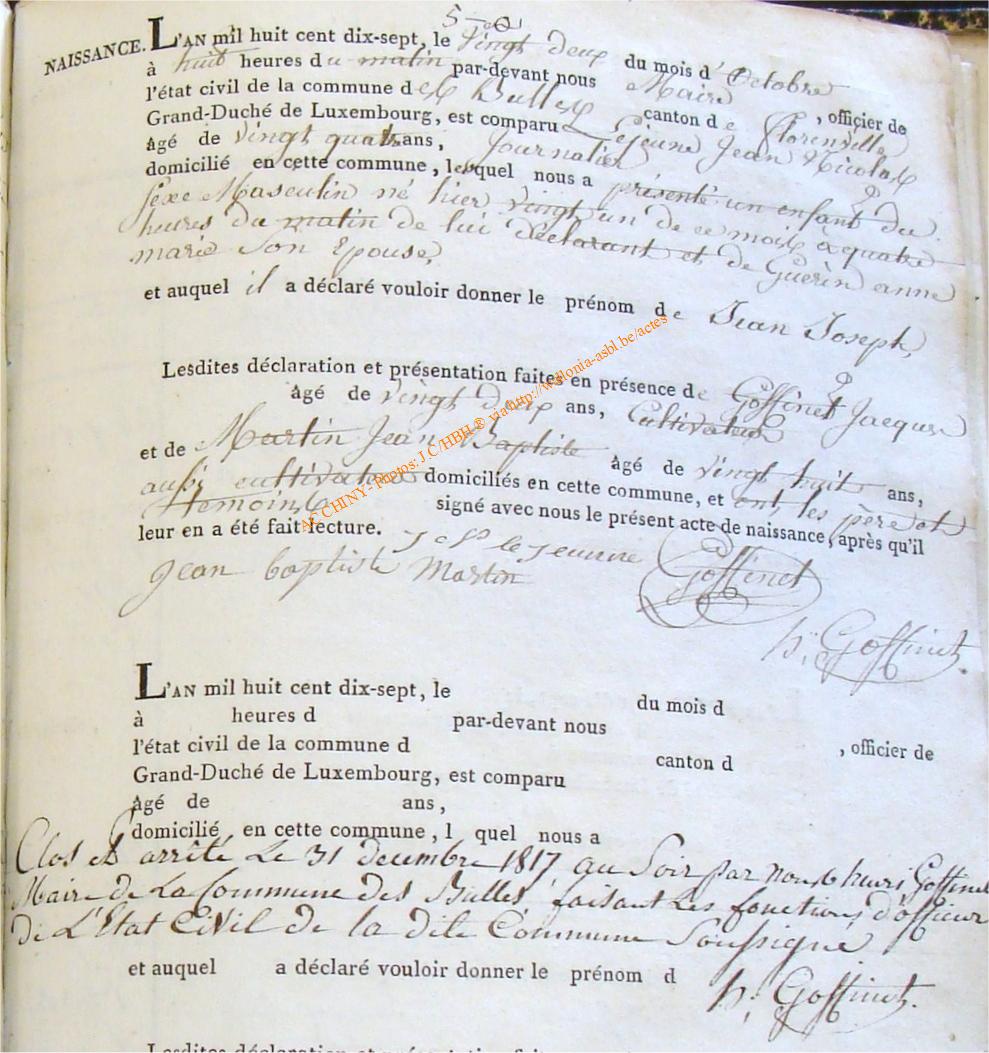 5
NAISSANCE. L'AN mil huit cent dix-sept, le vingt deux du mois d'Octobre
à huit heures du matin par-devant nous Maire, officier de
l'état civil de la commune des Bulles canton de Florenville
Grand-Duché de Luxembourg, est comparu Lejeune Jean Nicolas
âgé de vingt quatre ans, Journalier
domicilié en cette commune, lequel nous a présenté un enfant du
sexe Masculin né hier vingt un de ce mois à quatre
heures du matin de lui déclarant et de Guérin anne
marie Son Epouse,
et auquel il a déclaré vouloir donner le prénom de Jean Joseph,
Lesdites déclaration et présentation faites en présence de Goffinet Jacques
âgé de vingt deux ans, Cultivateur
et de Martin Jean Baptiste âgé de vingt huit ans,
aussi cultivateur domiciliés en cette commune, et ont les père et
témoins signé avec nous le présent acte de naissance, après qu'il
leur en a été fait lecture.
le jeunne Goffinet
jean baptiste Martin
h. Goffinet.
L'AN mil huit cent dix-sept, le du mois d
à heures d par-devant nous , officier de
l'état civil de la commune d canton d
Grand-Duché de Luxembourg, est comparu
âgé de ans,
domicilié en cette commune, l quel nous a
Clos et arrêté Le 31 decembre 1817 au Soir par nous henri Goffinet
Maire de La Commune des Bulles faisant Les fonctions d'officier
de L'Etat Civil de la dite Commune Soussigné
et auquel a déclaré vouloir donner le prénom d
h. Goffinet.
Lesdites déclaration et présentation
AC CHINY - Photos: J.C/HBH ® via http://wallonia-asbl.be/actes